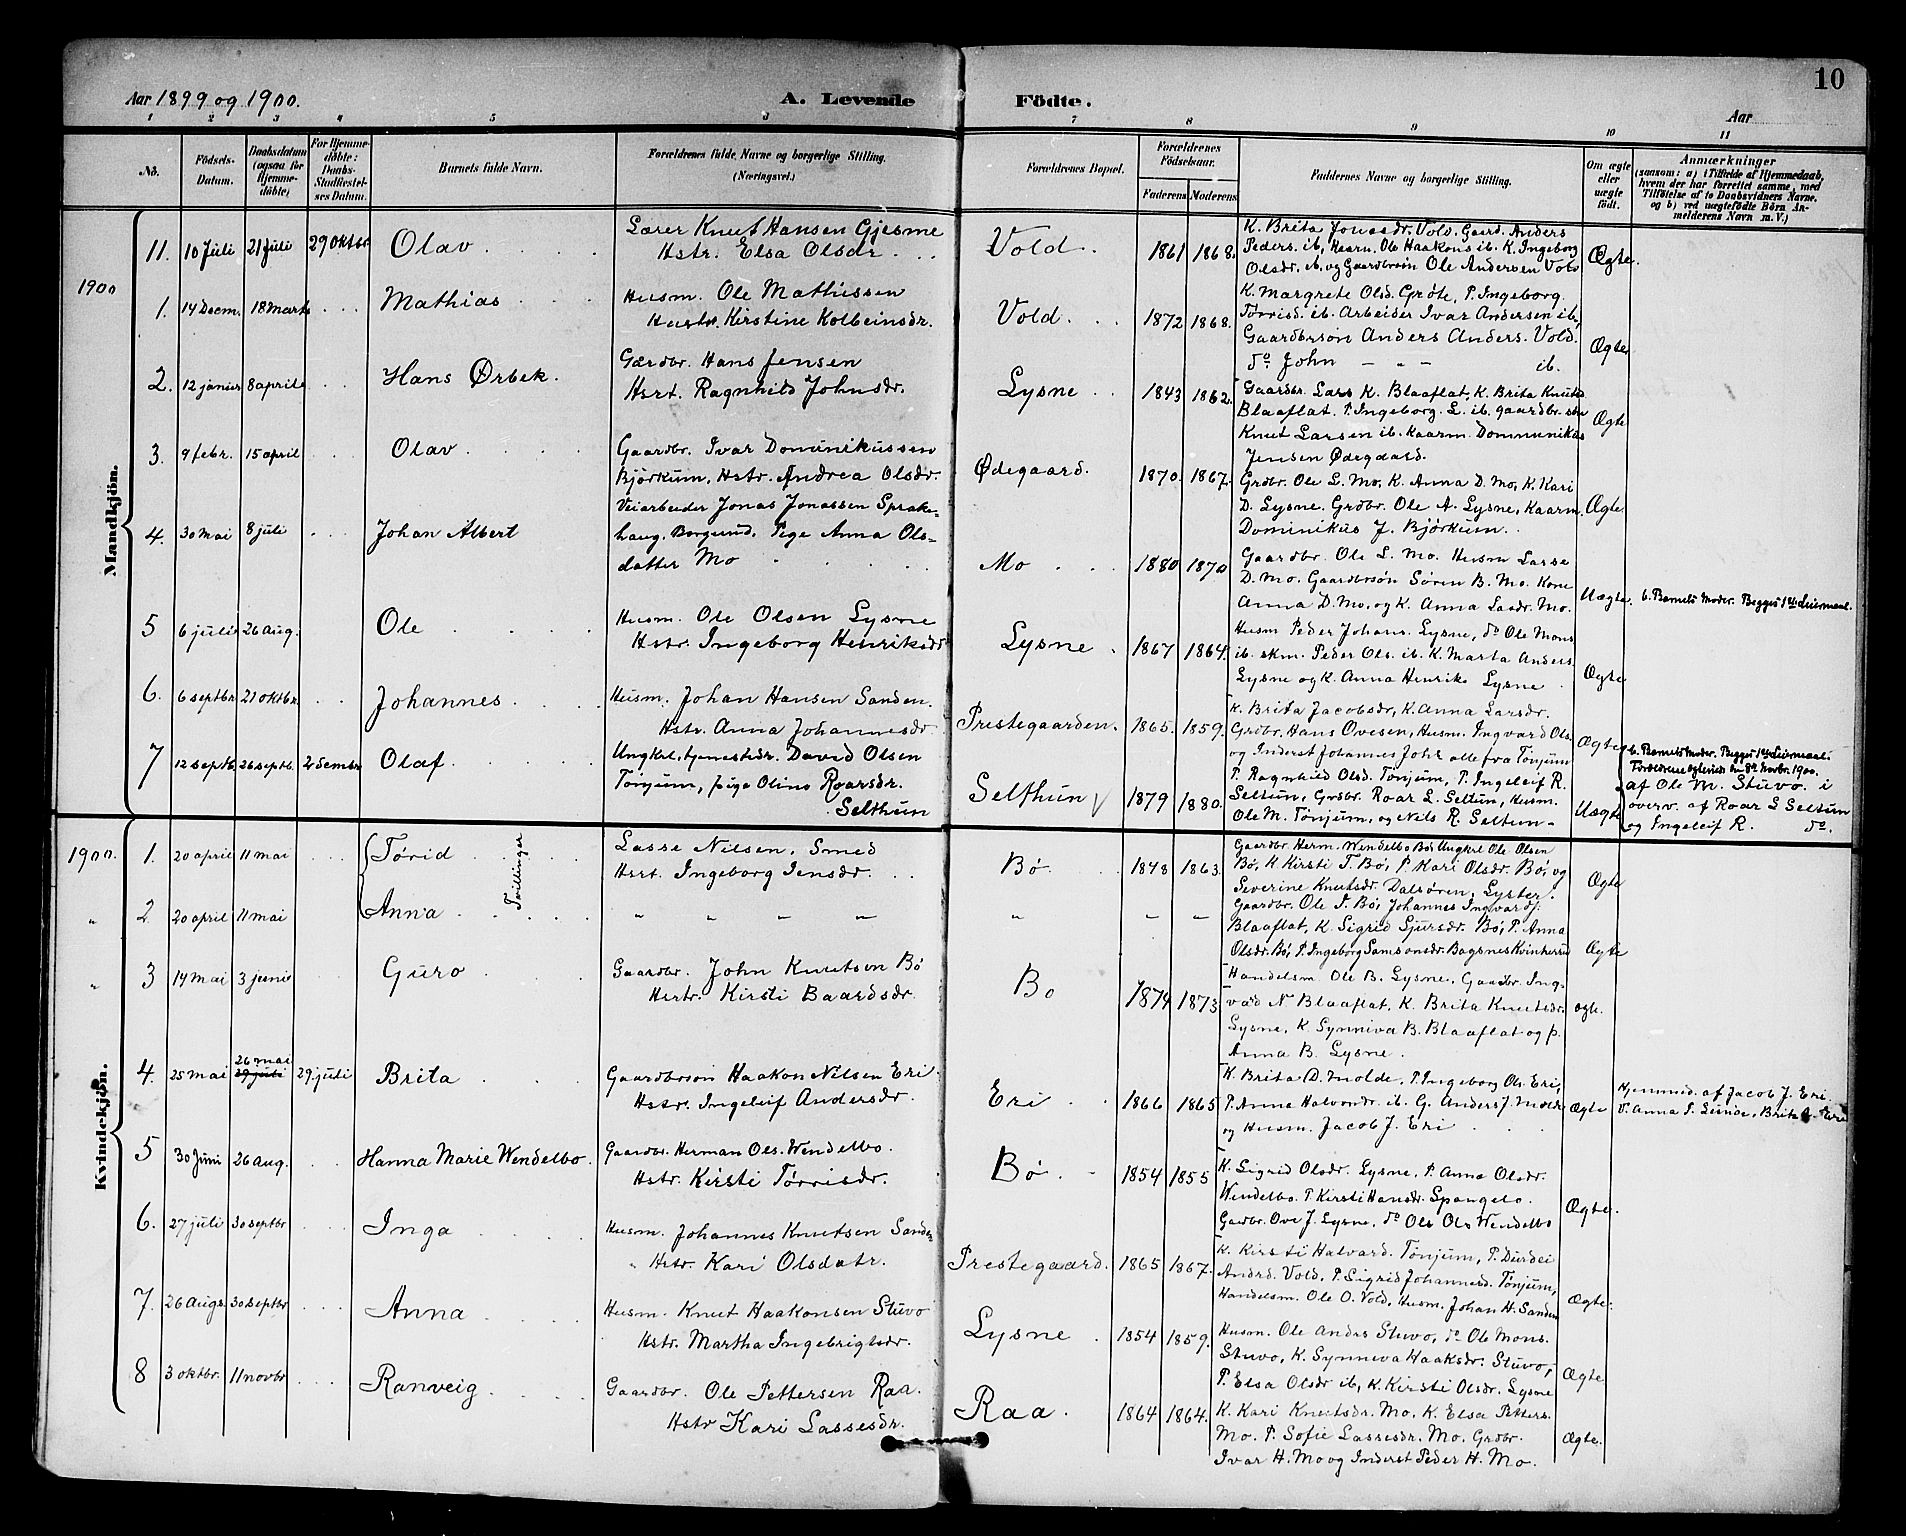 10
Aar 1899 og 1900.
A. Levende Födte.
Aar
1 2 3 4 5 6 7 8 9 10 11
No.
Födsels-Datum.
Daabsdatum (ogsaa for Hjemmedöbte)
For Hjemmedöbte: Daabs-Stadfæstelses Datum.
Barnets fulde Navn.
Forældrenes fulde Navne og borgerlige Stilling. (Næringsvei.)
Forældrenes Bopæl.
Forældrenes Födselsaar.
Faderens
Moderens
Faddernes Navne og borgerlige Stilling.
Om ægte eller uægte födt.
Anmærkninger
(saasom: a) i Tilfælde af Hjemmedaab,
hvem der har forrettet samme, med
Tilföielse af to Daabsvidners Navne.
og b) ved uægtefödte Börn An-
melderens Navn m. V.)
Mandkjön.
11. 10 Juli 21 Juli 29 Oktbr. Olav
Lærer Knut Hansen Gjesme
Hstr. Elsa Olsdr.
Vold 1861 1868.
K. Brita Jonasdr. Vold. Gaard. Anders
Peders. ib, Kaarm. Ole Haakons ib. K. Ingeborg
Olsdr. ib, og Gaardbrsön Ole Andersen Vold
Ægte.
1900
1. 14 Decm. 18 Marts Mathias
Husm. Ole Mathissen
Hustr. Kirstine Kolbeinsdr.
Vold. 1872 1868.
K. Margrete Olsd. Grøte, P. Ingeborg
Tørrisd. ib. Arbeider Ivar Andersen ib,
Gaardbrsön Anders Anders. Vold.
do John — " — ib.
Ægte
2. 12 januar 8 april Hans Ørbek.
Gardbr. Hans Jensen
Hstr. Ragnhild Johnsdr.
Lysne 1843 1862.
Gaardbr. Lars K. Blaaflat, K. Brita Knutsd
Blaaflat. P. Ingeborg. L. ib. gaardbr. søn
Knut Larsen ib. Kaarm. Dommunikus
Jensen Ødegaard.
Ægte
3. 9 febr. 15 april Olav
Gaardbr. Ivar Dominikussen
Bjørkum, Hstr. Andrea Olsdr.
Ødegaard. 1870. 1867.
Grdbr. Ole L. Mo, K. Anna D. Mo, K. Kari
D. Lysne. Grdbr. Ole A. Lysne, Kaarm.
Dominikus J. Bjørkum.
Ægte
4. 30 Mai 8 juli Johan Albert
Veiarbeider Jonas Jonassen Sprake-
haug. Borgund. Pige Anna Ols-
datter Mo
Mo 1880 1870
Gaardbr. Ole L. Mo. Husm Lasse
D. Mo. Gaardbrsön Sören B. Mo. Kone
Anna D. Mo, og K. Anna Lasdr. Mo.
Uægte. b. Barnets Moder. Begges 1ste Leiermaal.
5 6 juli 26 Aug. Ole
Husm. Ole Olsen Lysne
Hstr. Ingeborg Henriksdr
Lysne 1867 1864.
Husm Peder Johans. Lysne, do Ole Mons
ib. skm. Peder Ols. ib. K. Marta Anders.
Lysne og K. Anna Henriks Lysne
Ægte
6. 6 septbr. 21 oktbr. Johannes
Husm. Johan Hansen Sanden.
Hstr. Anna Johannesdr
Prestegaarden. 1865. 1859.
K. Brita Jacobsdr, K. Anna Larsdr.
Grdbr. Hans Ovesen, Husm. Ingvard Ols.
og Inderst Johannes Johs. alle fra Tönjum
Ægte
7 12 septb. 26 septb. Olaf
Ungkrl, tjenestedr. David Olsen
Tönjum, pige Olina Roarsdr.
Selthun
Selthun 1879 1880.
P. Ragnhild Olsd. Tönjum, P. Ingeleif R.
Seltun, Grdbr. Roar L. Seltun, Husm.
Ole M. Tönjum, og Nils R. Seltun
Uægte
b. Barnets Moder. Begges 1ste Leiermaal.
Forældrene ægteviet den 8de Novbr. 1900.
af Ole M. Stuvo. i
overv. af Roar L Seltun
og Ingeleif R. do.
Kvindekjön.
1900. 1. 20 april 11 mai Tørid
Tvillinger
Lasse Nilsen, Smed
Hstr. Ingeborg Jensdr.
Bø. 1848 1863.
Gaardbr. Herm. Wendelbo Bø, Ungkrl Ole Olsen
Bø, K Kirsti T. Bø, P. Kari Olsdr. Bø, og
Severine Knutsdr. Dalsören, Lyster.
Ægte
" 2 20 april 11 mai Anna
" " — —
" — —
Gaardbr. Ole T. Bø, Johannes Ingvardj.
Blaaflat, K. Sigrid Sjursdr. Bø, P. Anna
Olsdr. Bø, P. Ingeborg Samsonsdr. Bagsnes Kvinherred
Ægte
" 3 14 Mai 3 juni Guro
Gaardbr. John Knutsen Bø
Hstr. Kirsti Baardsdr.
Bø 1874 1873
Handelsm. Ole B. Lysne. Gaardbr. Ing-
vard N Blaaflat, K. Brita Knutsdr.
Lysne, K Synniva B. Blaaflat og p.
Anna B. Lysne.
ægte.
4. 25 mai 26 mai 29 juli 29 juli Brita
Gaardbrson Haakon Nilsen Eri
Hstr. Ingeleif Andersdr.
Eri 1866 1865
K. Brita D. Molde, P. Ingeborg Ols Eri,
P. Anna Halvorsdr. ib. G. Anders J. Molde
og Husm. Jacob J. Eri
Ægte
Hjemmed. af Jacob J. Eri
V. Anna P. Lunde, Brita A. Eri
5 30 Juni 26 Aug. Hanna Marie Wendelbo.
Gaardbr. Herman Ols. Wendelbo.
Hstr. Kirsti Tørrisdr.
Bø. 1854 1855
K. Sigrid Olsdr. Lysne, P. Anna Olsdr.
Wendelbo. P. Kirsti Hansdr. Spangelo.
Gardbr. Ove J. Lysne, do Ole Ols Wendelbo
Ægte.
6. 27 juli 30 septbr Inga
Husm. Johannes Knutsen Sanden
" Hstr. Kari Olsdatr.
Prestegaard. 1865 1867.
K. Kirsti Halvard. Tönjum, P. Durdei
Andrd. Vold, P. Sigrid Johannesd. Tönjum,
Handelsm. Ole O. Vold, Husm. Johan H. Sanden
Ægte.
7. 26 Augs. 30 septbr Anna
Husm. Knut Haakonsen Stuvo
Hstr. Martha Ingebrigtsdr.
Lysne 1854 1859.
Husm. Ole Anders Stuvo, do Ole Mons.
Stuvo, K. Synneva Haaksdr. Stuvo,
P. Elsa Olsdr ib, K. Kirsti Olsdr. Lysne
Ægte
8 3 oktbr. 11 novbr Ranveig
Gaardbr. Ole Pettersen Raa.
Hstr Kari Lassesdr.
Raa. 1864 1864.
K. Kari Knutsdr. Mo, K. Elsa Petters.
Mo. P. Sofie Lassesdr. Mo. Grdbr.
Ivar H. Mo og Inderst Peder H. Mo.
Ægte.